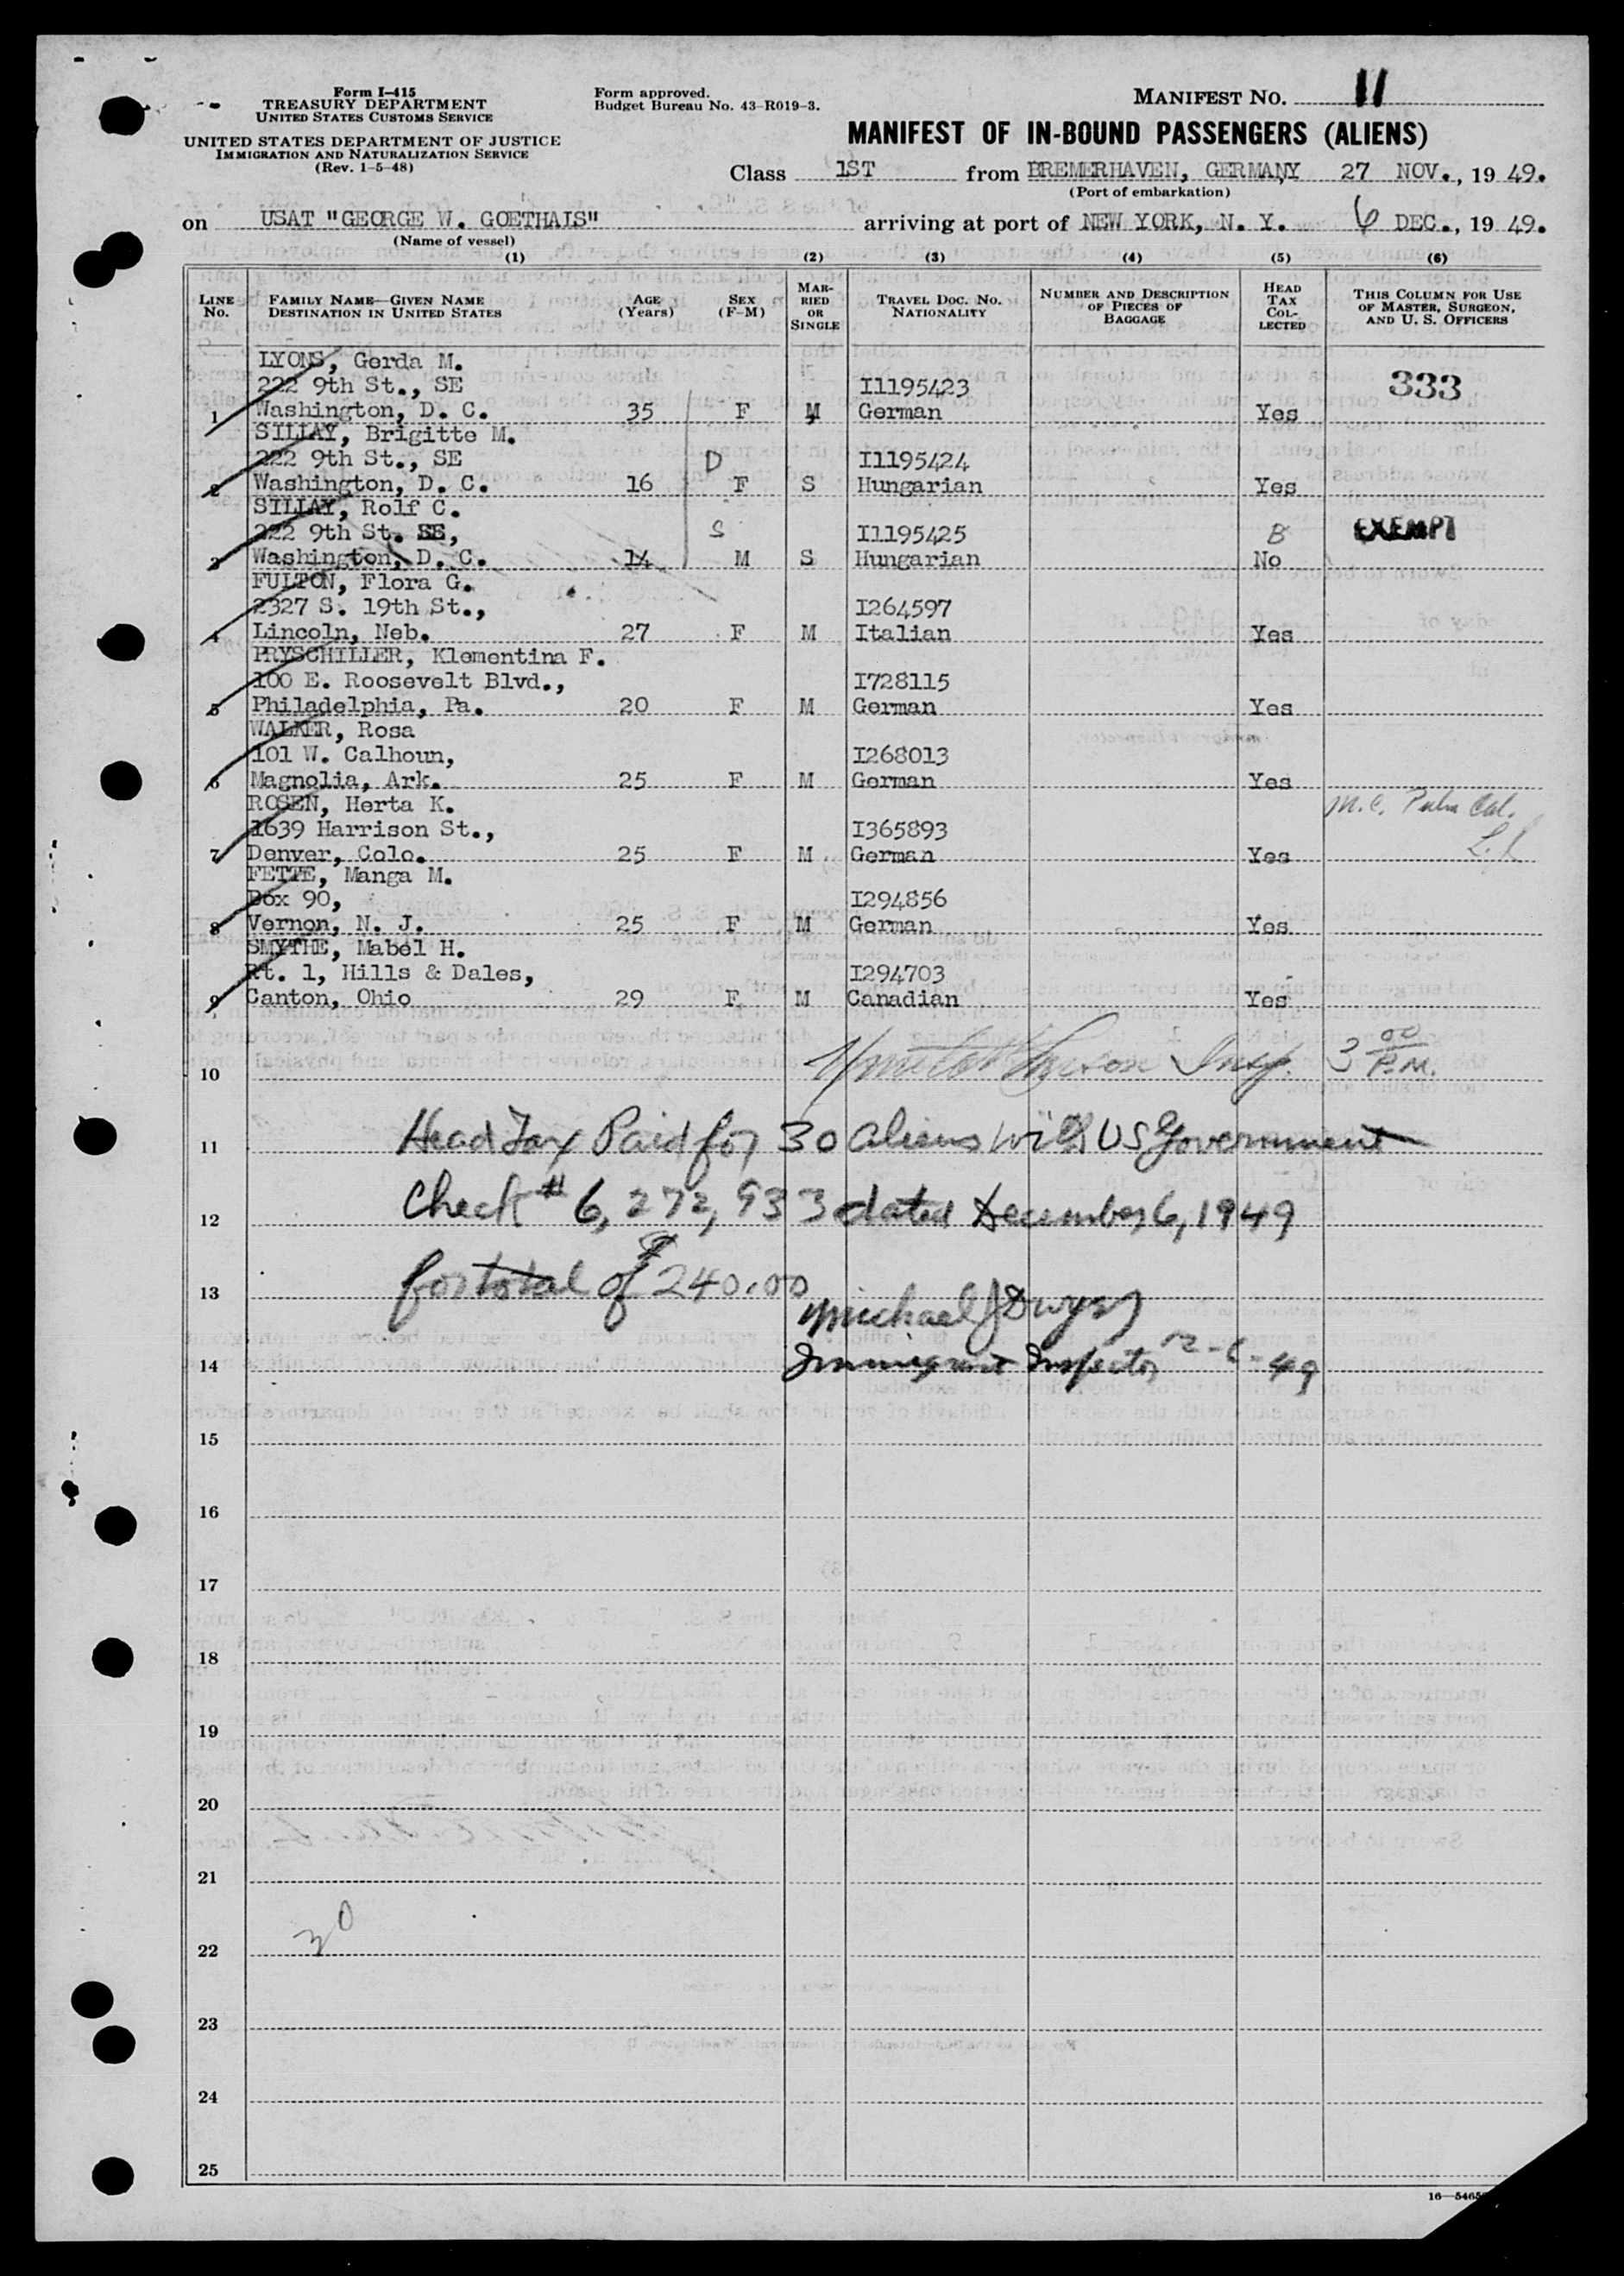 Form I-415
TREASURY DEPARTMENT
UNITED STATES CUSTOMS SERVICE
UNITED STATES DEPARTMENT OF JUSTICE
IMMIGRATION AND NATURALIZATION SERVICE
(Rev. 1-5-48)
Form approved.
Budget Bureau No. 43-R019-3.
MANIFEST NO. 11
MANIFEST OF IN-BOUND PASSENGERS (ALIENS)
Class 1ST from BREMERHAVEN, GERMANY 27 NOV., 19 49.
(Port of embarkation)
on USAT "GEORGE W. GOETHALS" arriving at port of NEW YORK, N. Y. 6 DEC., 19 49.
(Name of vessel)
(1) (2) (3) (4) (5) (6)
LINE No. FAMILY NAME—GIVEN NAME DESTINATION IN UNITED STATES AGE (Years) SEX (F-M) MARRIED OR SINGLE TRAVEL DOC. NO. NATIONALITY NUMBER AND DESCRIPTION OF PIECES OF BAGGAGE HEAD TAX COLLECTED THIS COLUMN FOR USE OF MASTER, SURGEON, AND U. S. OFFICERS
LYONS, Gerda M.
222 9th St., SE I1195423 333
1 Washington, D. C. 35 F M German Yes
SILLAY, Brigitte M.
222 9th St., SE D I1195424
2 Washington, D. C. 16 F S Hungarian Yes
SILLAY, Rolf C.
222 9th St. SE, S I1195425 B EXEMPT
3 Washington, D. C. 14 M S Hungarian No
FULTON, Flora G.
2327 S. 19th St., I264597
4 Lincoln, Neb. 27 F M Italian Yes
PRYSCHILLER, Klementina F.
100 E. Roosevelt Blvd., I728115
5 Philadelphia, Pa. 20 F M German Yes
WALKER, Rosa
101 W. Calhoun, I268013
6 Magnolia, Ark. 25 F M German Yes
ROSEN, Herta K. M.C. Pulm Cal.
1639 Harrison St., I365893
7 Denver, Colo. 25 F M German Yes
FETTE, Manga M.
Box 90, I294856
8 Vernon, N. J. 25 F M German Yes
SMYTHE, Mabel H.
Rt. 1, Hills & Dales, I294703
9 Canton, Ohio 29 F M Canadian Yes
10 Insp. 3 00 P.M.
11 Head Tax Paid for 30 aliens with US Government
12 Check # 6,272,933 dated December 6, 1949
13 for total of $240.00
Michael J Dwyer
14 Immigrant Inspector 12-6-49
15
16
17
18
19
20
21
30
22
23
24
25